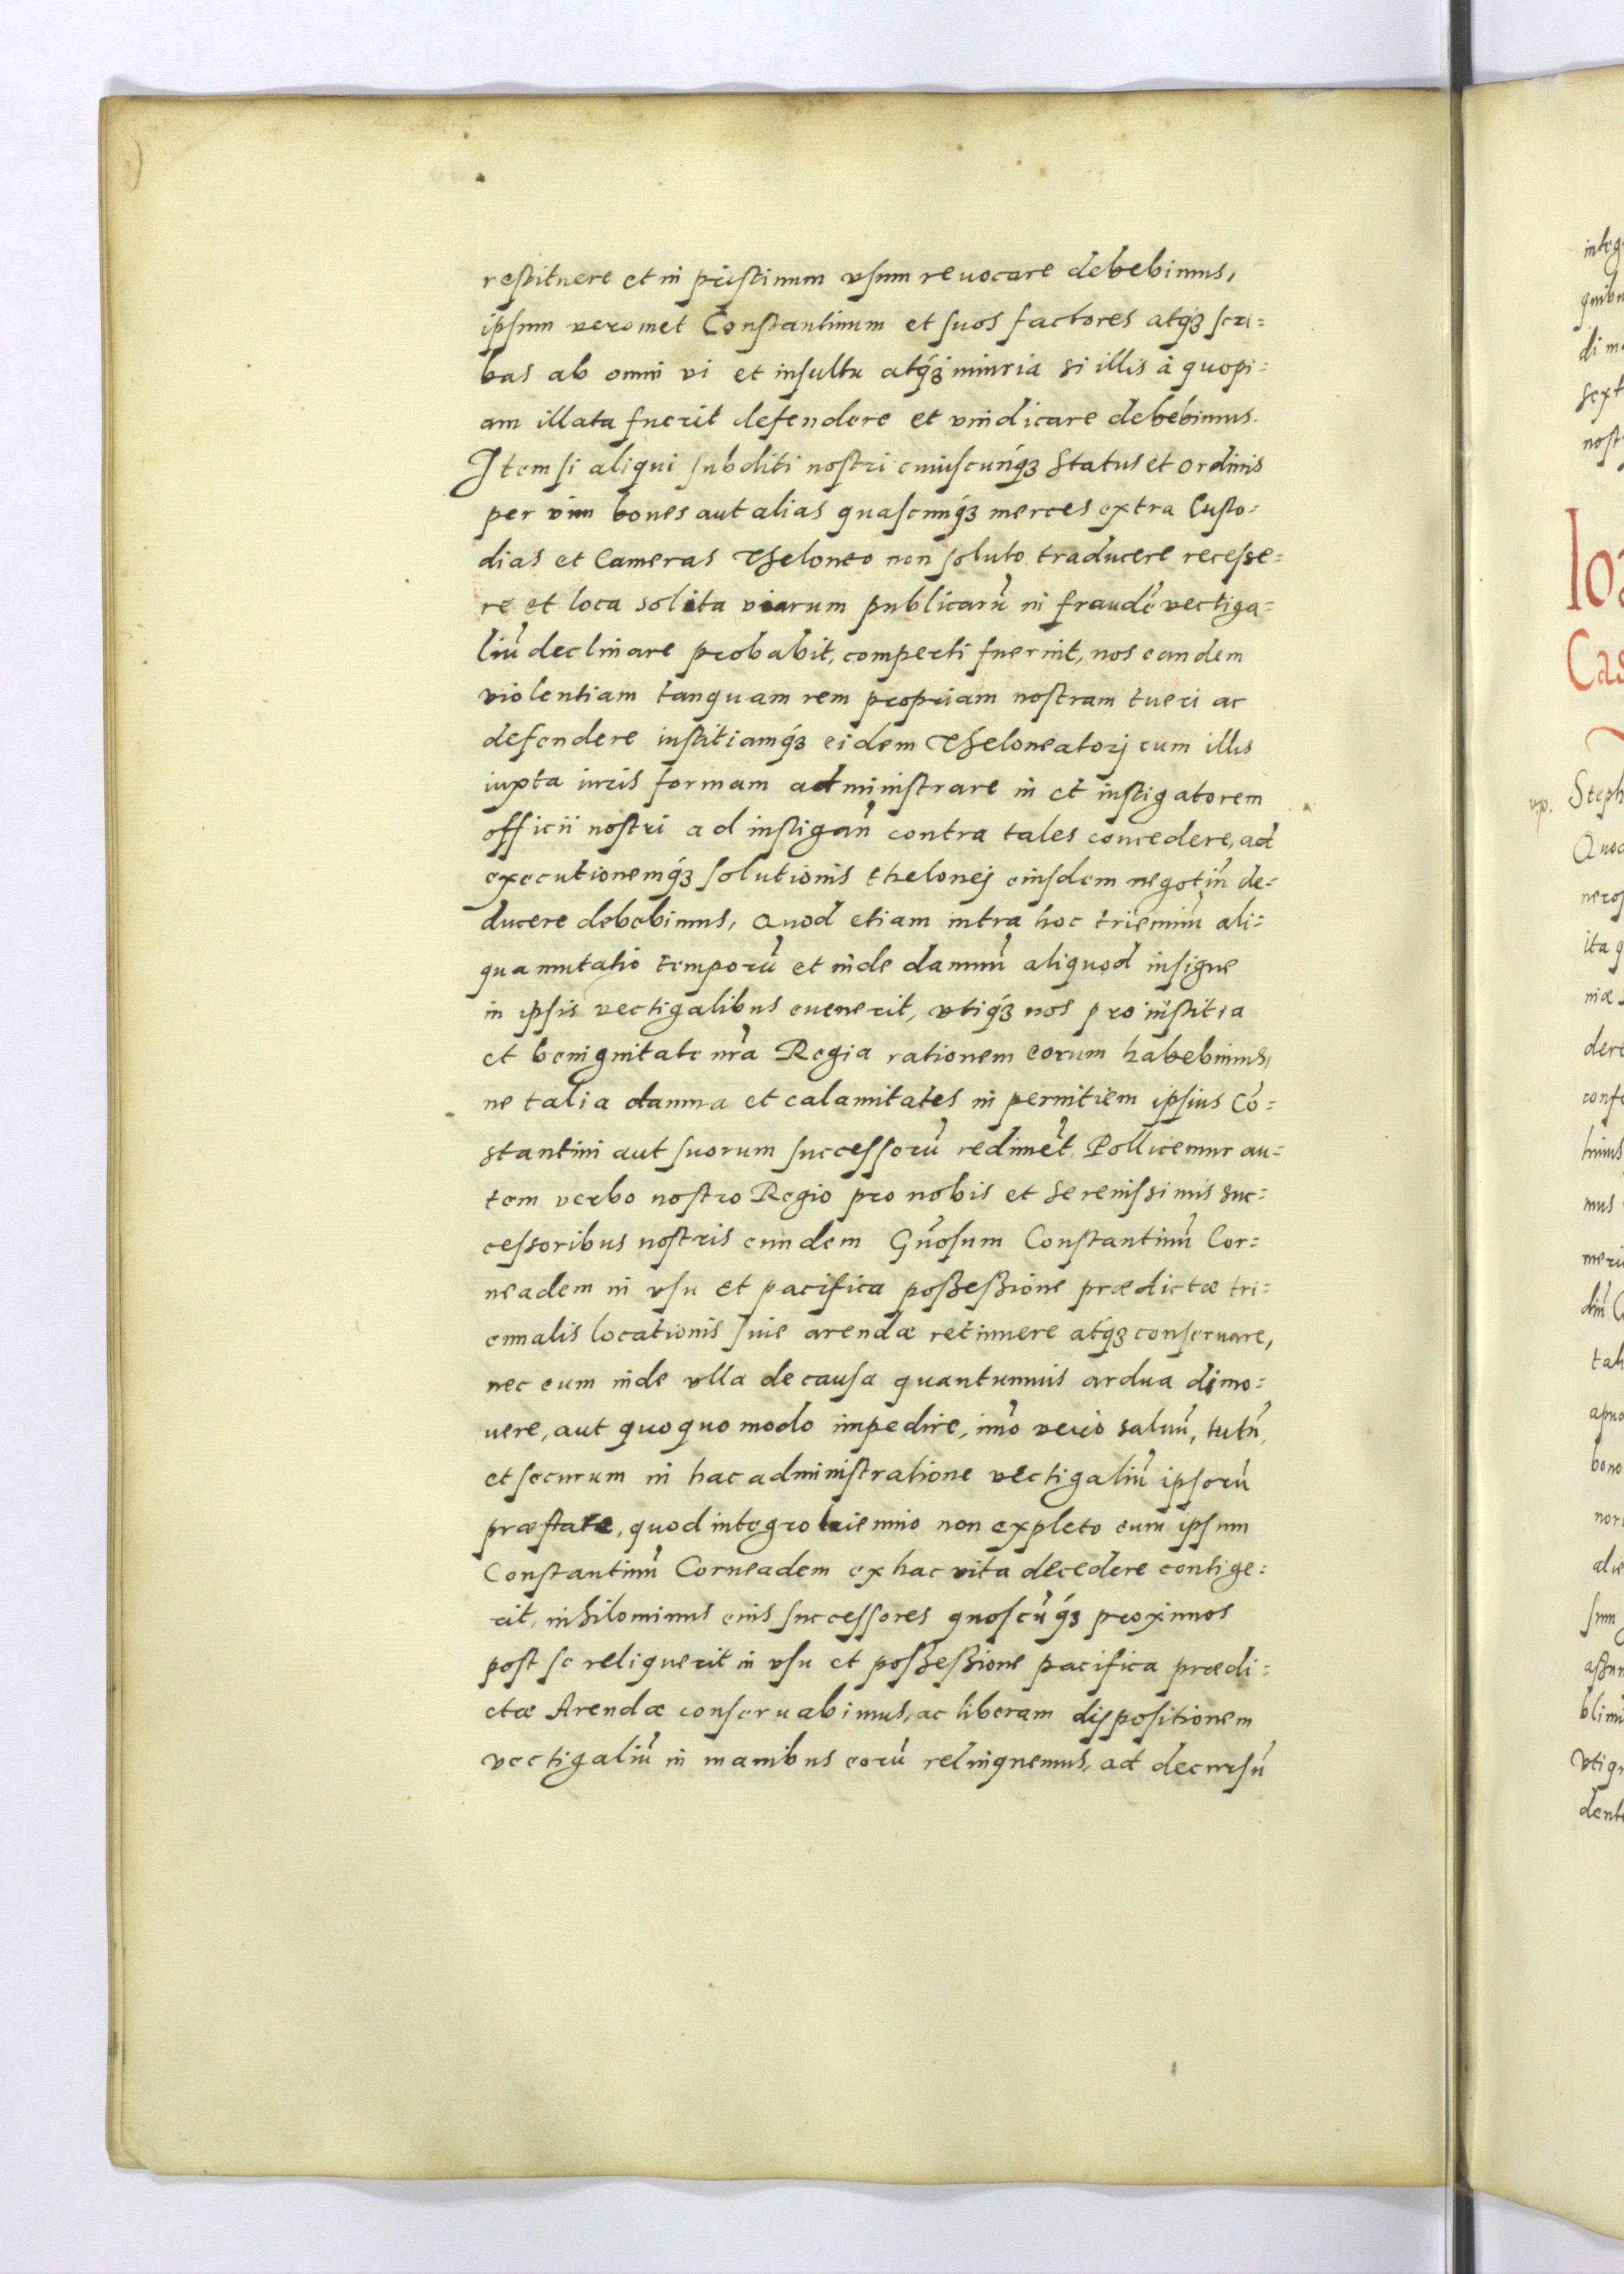 restituere et in pristinum vsum reuocare debebimus,
ipsum veromet Constantinum et suos factores atq́ꝫ scri=
bas ab omni vi et insultu atq́ꝫ iniuria si illis à quopi=
am illata fuerit defendere et vindicare debebimus.
Item si aliqui subditi nostri cuiuscunq́ꝫ Status et ordinis
per vim boues aut alias quascunq́ꝫ merces extra Custo=
dias et Cameras Theloneo non soluto traducere recesse=
re et loca solita viarum publicarũ in fraudẽ vectiga=
liũ declinare probabit, comperti fuerint, nos eandem
violentiam tanquam rem propriam nostram tueri ac
defendere iustitiamq́ꝫ eidem Theloneatorj cum illis
iuxta iuris formam administrare in et instigatorem
officii nostri ad instigañ contra tales concedere, ad
executionemq́ꝫ solutionis thelonej eiusdem negotiũ de=
ducere debebimus, Quod etiam intra hoc trienniũ ali=
qua mutatio temporũ et inde damnũ aliquod insigne
in ipsis vectigalibus euenerit, vtiq́ꝫ nos pro iustitia
et benignitate nr̃a Regia rationem eorum habebimus,
ne talia damna et calamitates in pernitiem ipsius Cõ=
stantini aut suorum successorũ redimẽt. Pollicemur au=
tem verbo nostro Regio pro nobis et serenissimis suc=
cessoribus nostris eundem Gñosum Constantinũ Cor=
neadem in vsu et pacifica possessione prædictæ tri=
ennalis locationis siue arendæ retinuere atq́ꝫ conseruare,
nec eum inde vlla de causa quantumuis ardua dimo=
uere, aut quoquo modo impedire, imõ verò saluũ, tutũ,
et securum in hac administratione vectigaliũ ipsorũ
præstare, quod integro triennio non expleto eum ipsum
Constantinũ Corneadem ex hac vita decedere contige=
rit, nihilominus eius successores quoscũq́ꝫ proximos
post se reliquerit in vsu et possessione pacifica prædi=
ctæ Arendæ conseruabimus, ac liberam dispositionem
vectigaliũ in manibus eorũ relinquemus, ad decursũ